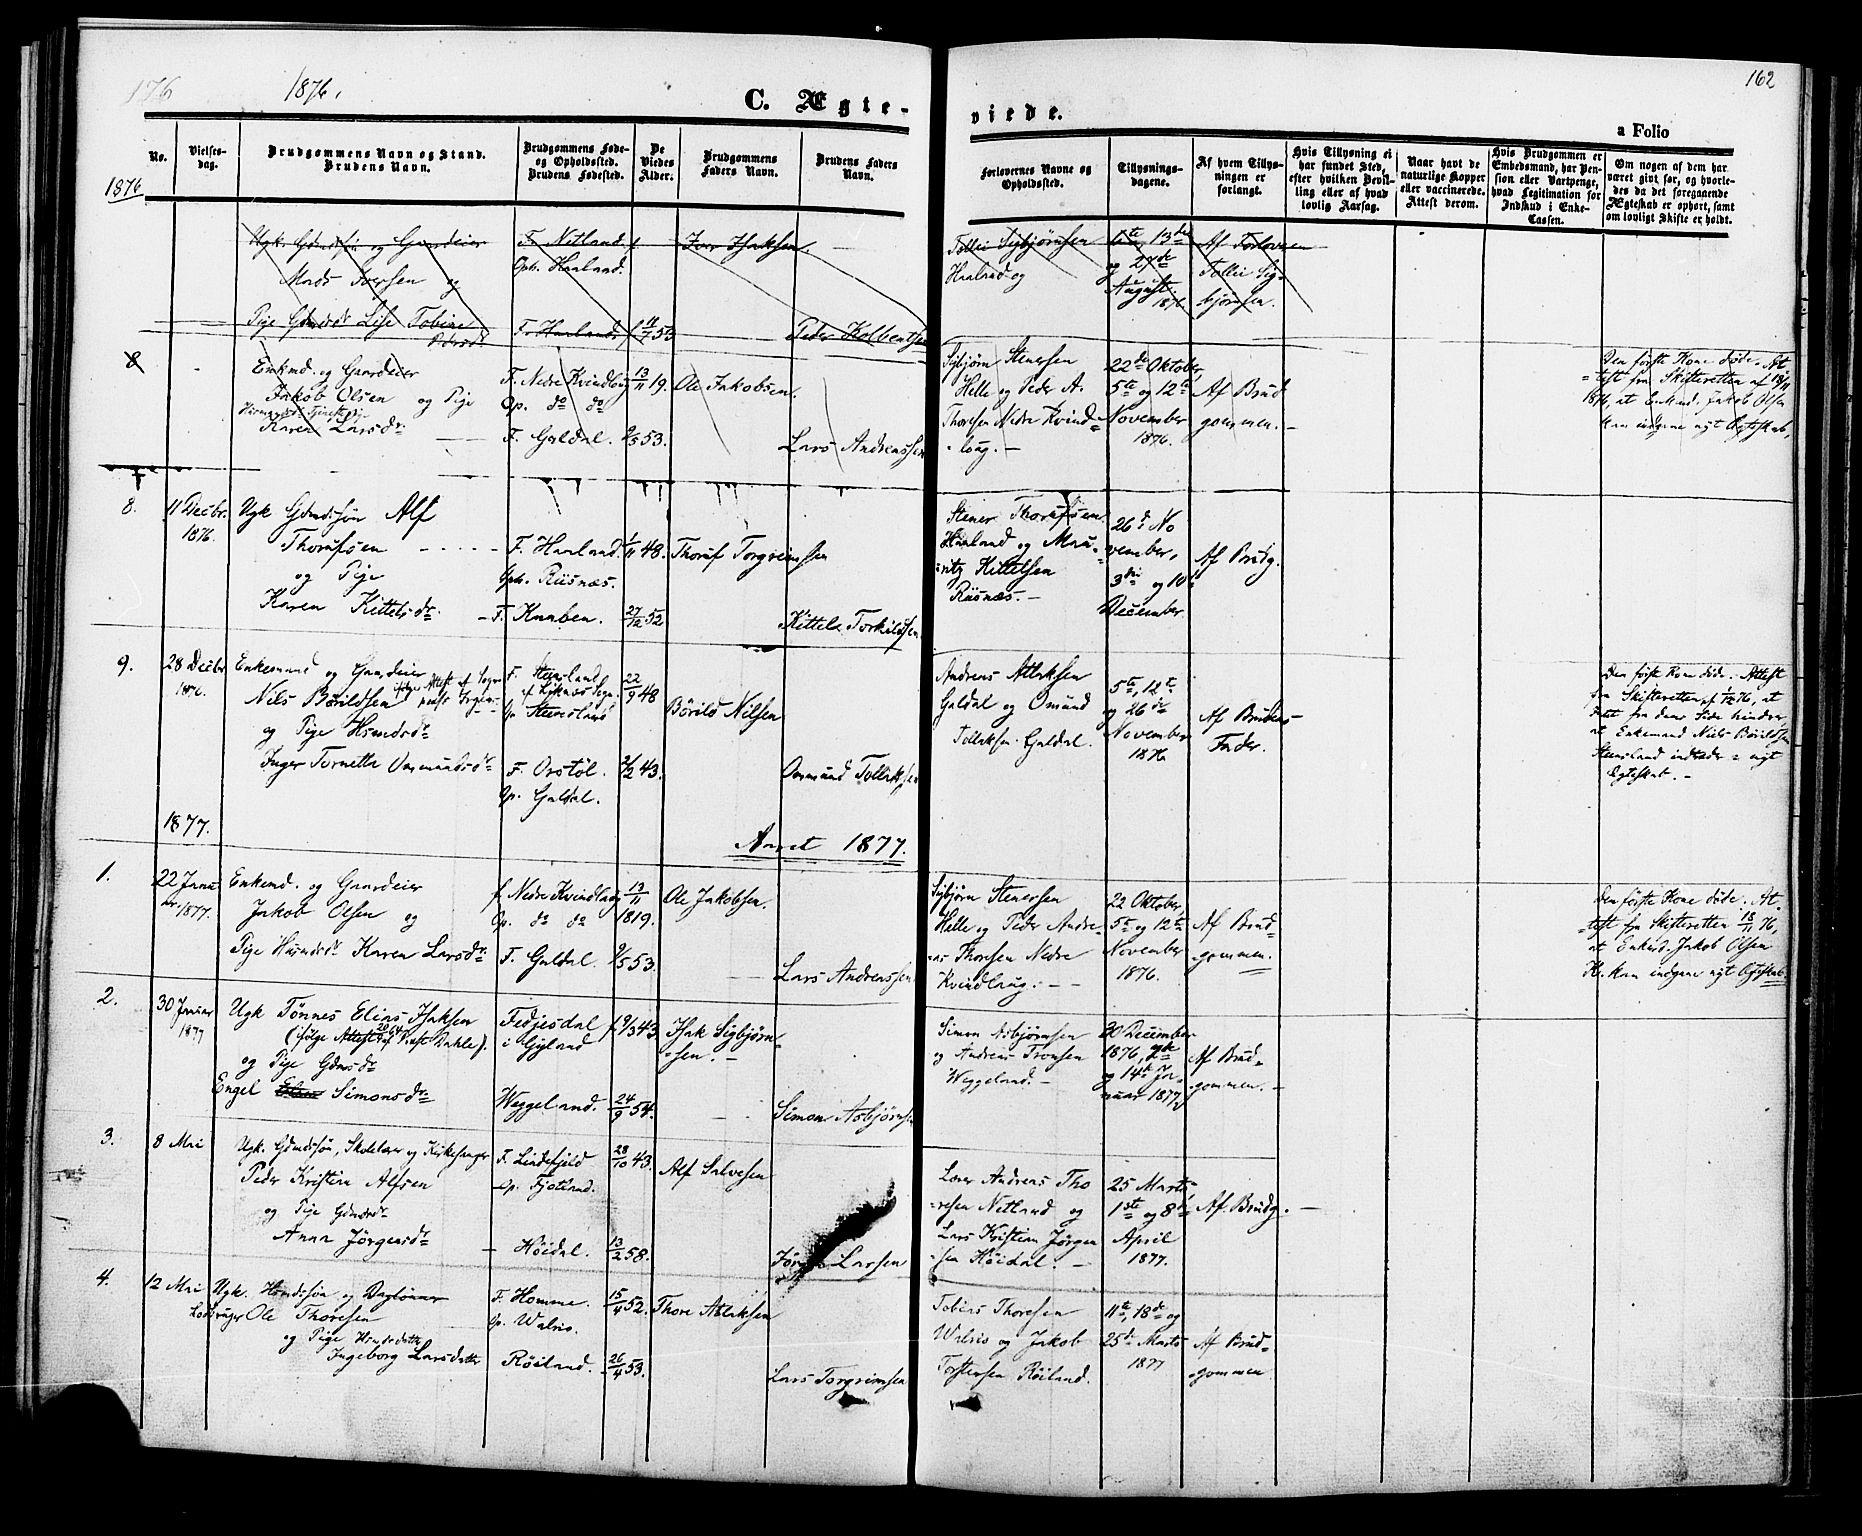 176
1876.
162
C. Ægte-
viede.
a Folio
No.
Vielses-
dag.
Brudgommens Navn og Stand.
Brudens Navn.
Brudgommens Føde-
og Opholdssted.
Brudens Fødested.
De
Viedes
Alder.
Brudgommens
Faders Navn.
Brudens Faders
Navn.
Forlovernes Navne og
Opholdssted.
Tillysnings-
dagene.
Af hvem Tillys-
ningen er
forlangt.
Hvis Tillysning ei
har fundet Sted,
efter hvilken Bevil-
ling eller af hvad
lovlig Aarsag.
Naar havt de
naturlige Kopper
eller vaccinerede.
Attest derom.
Hvis Brudgommen er
Embedsmand, har Pen-
sion eller Vartpenge,
hvad Legitimation for
Indskud i Enke-
Cassen.
Om nogen af dem har
været givt før, og hvorle-
des da det foregaaende
Ægteskab er ophørt, samt
om lovligt Skifte er holdt.
1876
Ugk. Gdmdssøn og Gaardeier
Mads Iversen og
Pige Gdmdsdr Lise Tobine
Pdersdr
F. Netland
Oph. Haaland.
F. Haaland
11/7 53
Iver Isaksen
Peder Kolbentsen
Tollei Sigbjørnsen
Haaland og
6te, 13de
og 27de
August
1876
Af Forloveren
Tollei Sig-
bjørnsen.
8
Enkmd. og Gaardeier
Jakob Olsen og Pige
Karen Larsdr.
F. Nedre Kvindlog
Op. do do
F. Galdal.
13/11 19.
9/5 53.
Ole Jakobsen.
Lars Andreassen
Sigbjørn Stenersen
Helle og Peder A.
Thoresen Nedre Kvind-
laug.
22de Oktober,
5te og 12te
November
1876.
Af Brud
gommen.
Den første Kone døde. At-
test fra Skifteretten af 18/11
1876, at Enkmd. Jakob Olsen
kan indgaae nyt Egteskab.
8.
11 Decbr.
1876.
Ugk Gdmdssøn Alf
Thorufsen
og Pige
Karen Kittelsdr.
F. Haaland.
Oph. Risnæs.
F. Knaben.
1/11 48.
27/12 52
Thoruf Torgreimsen
Kittel Torkildsen
Stener Thorufsen
Haaland og Mau-
ritz Kittelsen
Risnæs.
26d No
vember,
3die og 10d
December
Af Brudg.
9.
28 Decbr
1876.
Enkemand og Gaardeier
Nils Børildsen
og Pige Hsmdsdr
Inger Tornette Ommundsdr
F. Steensland
af Liknes Sogn.
Op. Steensland
F. Orstøl.
Op. Galdal.
22/9 48
2/2 43.
Børild Nilsen
Ommund Tollaksen
Andreas Atlaksen
Galdal og Omund
Tollaksen Galdal.
5te, 12te
og 26de
November
1876
Af Brudens
Fader.
Den første Kone død. Attest
fra Skifteretten af 1/12 76, at
Intet fra dens Side hindrer,
at Enkemand Niels Børildsen
Steensland indtræder i nyt
Egteskab.
1877.
Aaret 1877.
1.
22 Janu
ar 1877.
Enkemd. og Gaardeier
Jakob Olsen og
Pige Husmdsdr Karen Larsdr.
f. Nedre Kvindlaug
Op. do do
F. Galdal.
13/11
1819.
9/5 53.
Ole Jakobsen.
Lars Andreassen
Sigbjørn Stenersen
Helle og Peder Andre-
as Thoresen Nedre
Kvindlaug.
22 Oktober
5te og 12te
November
1876.
Af Brud-
gommen.
Den første Kone døde. At-
test fra Skifteretten 18/11 76,
at Enkmd. Jakob Olsen
K. kan indgaae nyt Egteskab.
2.
30 Januar
1877
Ugk Tønnes Elias Isaksen
(ifølge Attest af Præst Dahle).
og Pige Gdmdsdr
Engel Simonsdr
Fedjesdal
i Gyland
Weggeland.
9/3 43.
24/9 54.
Isak Sigbjørn-
sen.
Simon Asbjørnsen
Simon Asbjørnsen
og Andreas Tronsen
Weggeland.
30 December
1876, 7de
og 14de Ja-
nuar 1877
Af Brud-
gommen.
3.
8 Mai
Ugk. Gdmdssøn, Skolelærer og Kirkesanger
Peder Kristian Alfsen
og Pige Gdmdsdr
Anna Jørgensdr
F. Lindefjeld
Op. Fjotland.
Høidal.
28/10 43.
13/2 58.
Alf Salvesen
Larsen
Lærer Andreas Tho
resen Netland og
Lars Kristian Jørgen
sen Høidal.
25 Marts
1ste og 8d
April
1877.
Af Brudg.
4.
12 Mai
Ugk. Hsmdssøn og Dagslønner
Ole Thoresen
og Pige Hsmdsdatter
Ingeborg Larsdatter
F. Homme.
Op. Walris.
Røiland.
15/4 52.
26/4 53.
Thore Atlaksen
Lars Torgrimsen
Tobias Thoresen
Walris og Jakob
Torstensen Røiland.
11te, 18de og
25de Marts
1877
Af Brud-
gommen